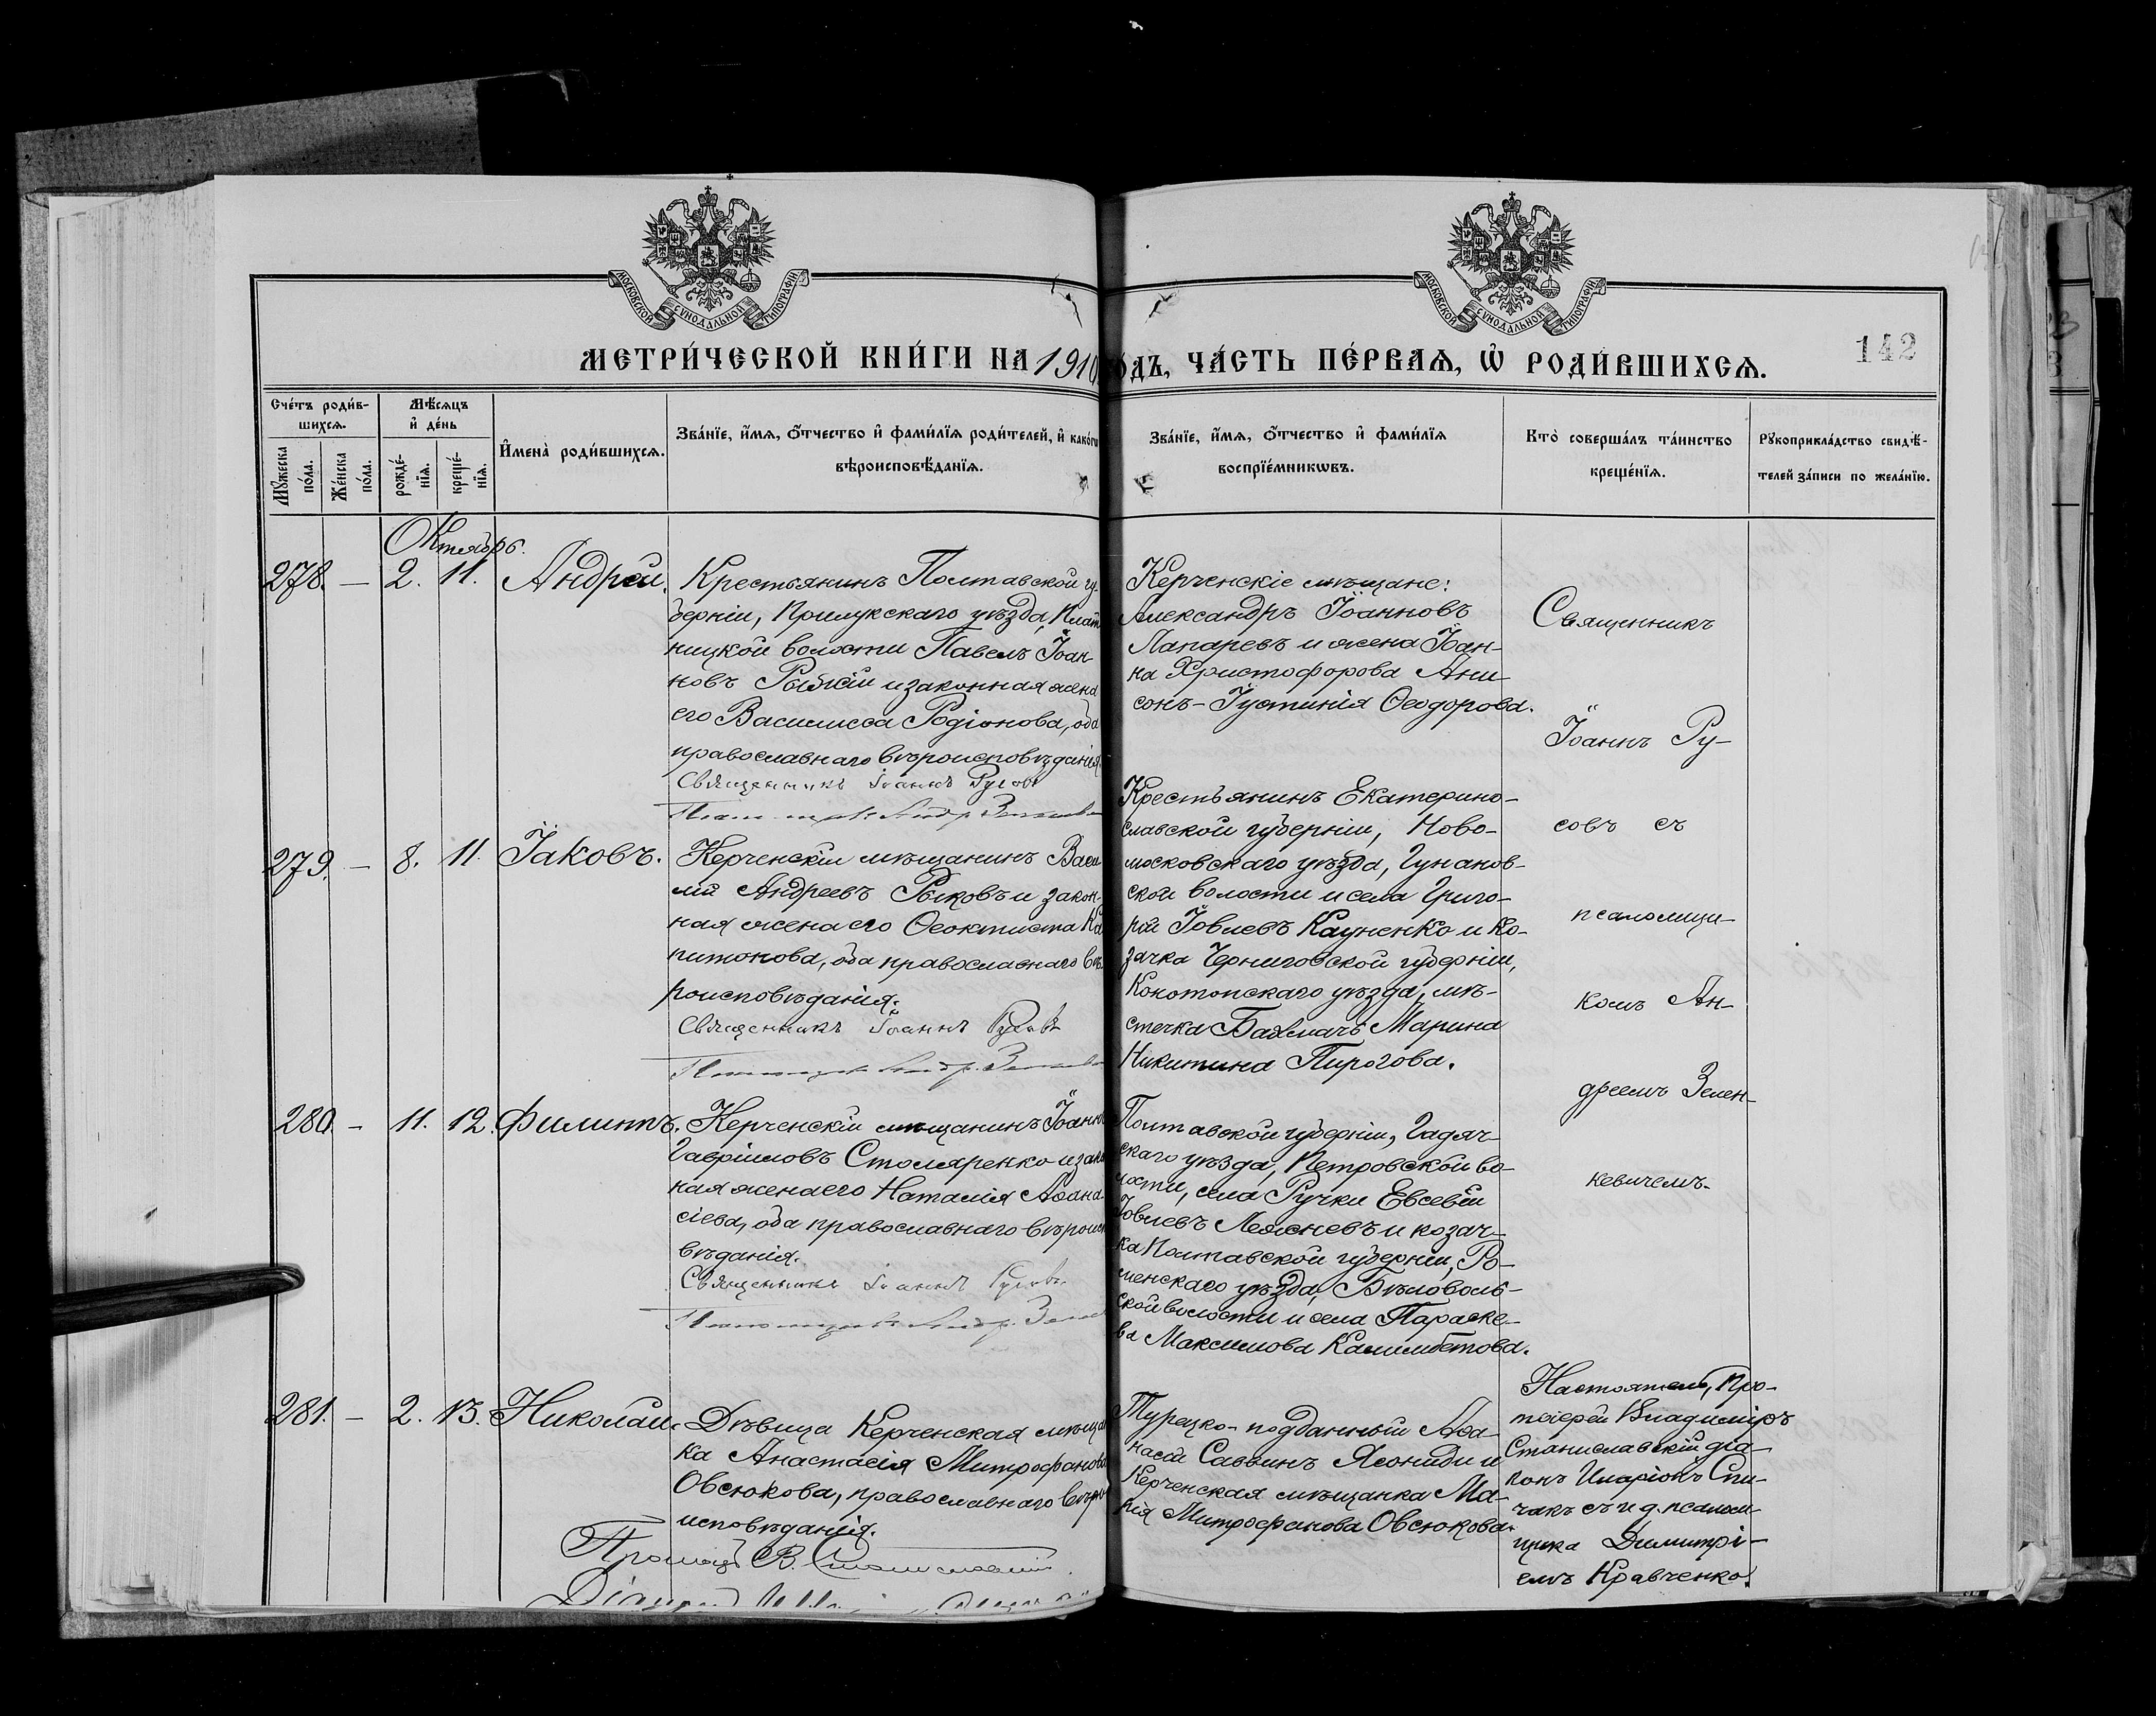 МОСКОВСКОЙ СѴНОДАЛЬНОЙ ТИПОГРАФІИ
МОСКОВСКОЙ СѴНОДАЛЬНОЙ ТИПОГРАФІИ
МЕТРИ́ЧЕСКОЙ КНИ́ГИ НА 1910
ГО́ДЪ, ЧА́СТЬ ПЕ́РВАѦ, Ѡ҆ РОДИ́ВШИХСѦ.
142
Сче́тъ роди́в-
шихсѧ.
Мꙋ́жеска по́ла.
Же́нска по́ла.
Мѣ́сѧцъ и҆ де́нь
рожде́-нїѧ.
креще́-нїѧ.
И҆мена̀ роди́вшихсѧ.
Зва́нїе, и҆́мѧ, ѻ҆́тчество и҆ фами́лїѧ роди́телей, и҆ како́гѡ
вѣроисповѣ́данїѧ.
Зва́нїе, и҆́мѧ, ѻ҆́тчество и҆ фами́лїѧ
воспрїе́мникѡвъ.
Кто̀ соверша́лъ та́инство
креще́нїѧ.
Рꙋкоприкла́дство свидѣ́-
телей за́писи по жела́нїю.
Октябрь.
278. — 2. 11. Андрей.
Крестьянинъ Полтавской гу-
берніи, Прилукскаго уѣзда,
ницкой волости Павелъ Іоан-
новъ и законная жена
его Василисса Родіонова, оба
православнаго вѣроисповѣданія.
Священникъ Іоаннъ Русовъ
Керченскіе мѣщане:
Александръ Іоанновъ
Лапаревъ и жена Іоан-
на Христофорова Ани
сонъ - Іустинія Ѳеодорова.
Священникъ
Іоаннъ Ру-
совъ съ
псаломщи-
комъ Ан-
дреемъ Зелен-
кевичемъ.
279. — 8. 11. Іаковъ.
Керченскій мѣщанинъ Васи
лій Андреевъ Рыковъ и закон-
ная жена его Ѳеоктиста Ка
питонова, оба православнаго вѣ-
роисповѣданія.
Священникъ Іоаннъ Русовъ
Крестьянинъ Екатерино-
славской губерніи, Ново-
московскаго уѣзда,
ской волости и села Григо-
рій Іовлевъ и Ко-
зачка Черниговской губерніи,
Конотопскаго уѣзда, мѣ-
стечка Бахмачъ Марина
Никитина Пирогова.
280. — 11. 12. Филиппъ.
Керченскій мѣщанинъ Іоаннъ
Гавріиловъ Столяренко и закон
ная жена его Наталія Аѳана-
сіева, оба православнаго вѣроиспо
вѣданія.
Священникъ Іоаннъ Русовъ
Полтавской губерніи, Гадяч-
скаго уѣзда, Петровской во-
лости, села Ручки Евсевій
Іовлевъ и козач-
ка Полтавской губерніи, Ро-
менскаго уѣзда,
ской волости и села Параске-
ва Максимова
281. — 2. 13. Николай.
Дѣвица Керченская мѣщан
ка Анастасія Митрофанова
Овсюкова, православнаго вѣро
исповѣданія.
Турецко-подданный Аѳа-
насій Саввинъ Ясониди и
Керченская мѣщанка Ма-
рія Митрофанова Овсюкова.
Настоятель, Про-
тоіерей Владиміръ
Станиславскій діа-
конъ Иларіонъ Спи-
чакъ съ и. д. псалом-
щика Димитрі-
емъ Кравченко.